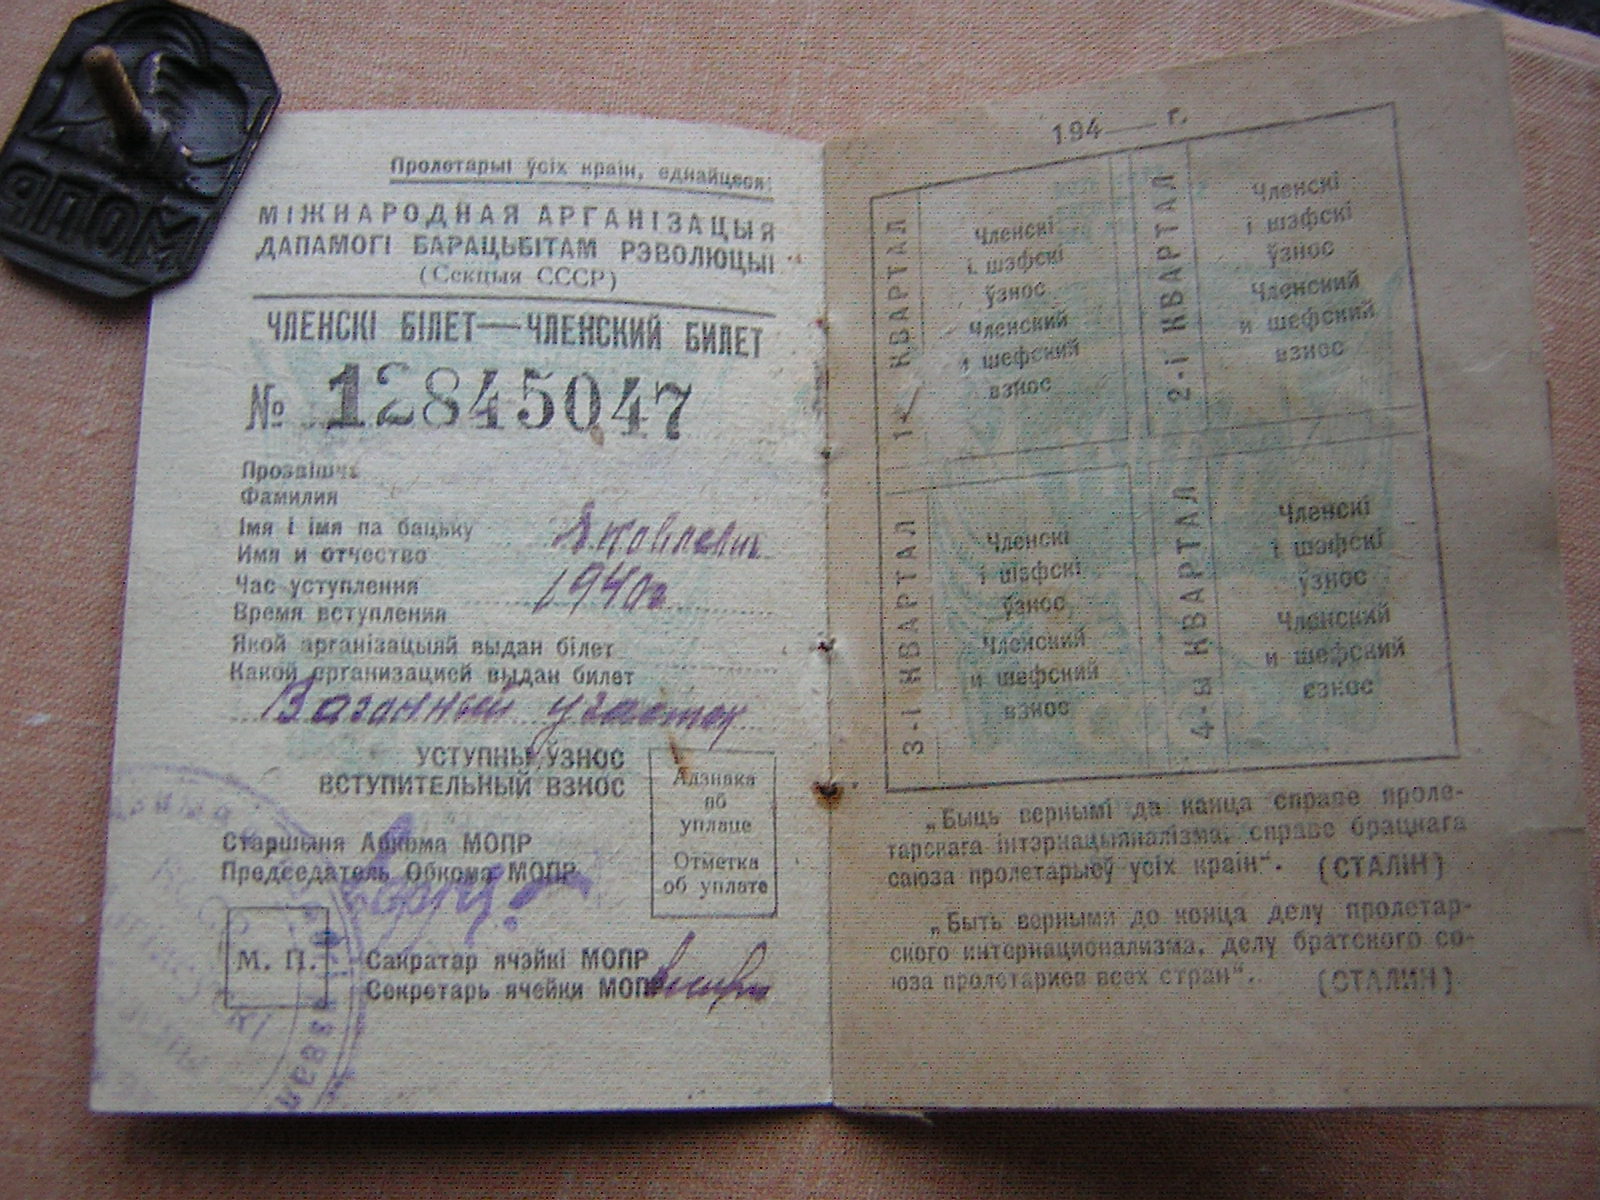 МОПР
Пролетарыі ўсіх краін, еднайцеся!
МІЖНАРОДНАЯ АРГАНІЗАЦЫЯ
ДАПАМОГІ БАРАЦЬБІТАМ РЭВОЛЮЦЫІ
(Секцыя СССР)
ЧЛЕНСКІ БІЛЕТ—ЧЛЕНСКИЙ БИЛЕТ
№ 12845047
Прозвішча
Фамилия
Імя і імя па бацьку
Имя и отчество Яковлевич
Час уступлення
Время вступления 1940г
Якой арганізацыяй выдан білет
Какой организацией выдан билет
Вагонный участок
УСТУПНЫ ЎЗНОС
ВСТУПИТЕЛЬНЫЙ ВЗНОС
Адзнака
аб
уплаце
Отметка
об уплате
Старшыня Абкома МОПР
Председатель Обкома МОПР
М. П.
Сакратар ячэйкі МОПР
Секретарь ячейки МОПР
194— г.
1-І КВАРТАЛ
Членскі
і шэфскі
ўзнос
Членский
и шефский
взнос
2-І КВАРТАЛ
Членскі
і шэфскі
ўзнос
Членский
и шефский
взнос
3-І КВАРТАЛ
Членскі
і шэфскі
ўзнос
Членский
и шефский
взнос
4-Ы КВАРТАЛ
Членскі
і шэфскі
ўзнос
Членский
и шефский
взнос
„Быць вернымі да канца справе проле-
тарскага інтэрнацыяналізма, справе брацкага
саюза пролетарыеў усіх краін“. (СТАЛІН)
„Быть верными до конца делу пролетар-
ского интернационализма, делу братского со-
юза пролетариев всех стран“. (СТАЛИН)